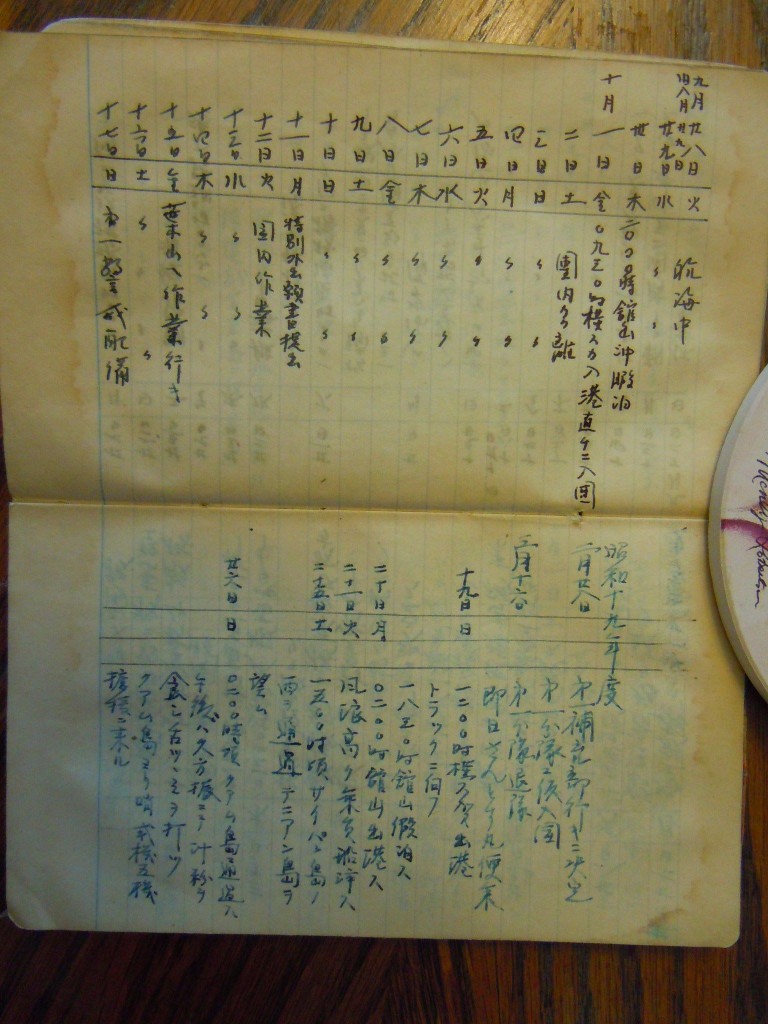 九月廿八日 火 航海中
旧八月廿九日
廿九日 水 〃 〃
卅日 木 二〇〇〇時館山沖假泊
十月 一日 金 〇九三〇時横スカ入港直チニ入団
二日 土 團内
三日 日 〃 〃
四日 月 〃 〃
五日 火 〃 〃
六日 水 〃 〃
七日 木 〃 〃
八日 金 〃 〃
九日 土 〃 〃
十日 日 〃 〃
十一日 月 特別外出願書提出
十二日 火 團内作業
十三日 水 〃 〃
十四日 木 〃 〃
十五日 金 葉山ヘ作業行キ
十六日 土 〃 〃
十七日 日 警戒配備
昭和十九年度
第一補充部行キニ決定
第一分隊ニ仮入団
三月十六日 第一分隊退隊
即日さんとす丸便乗
十九日 日 一二〇〇時横スカ出港
トラックニ向フ
一八三〇時館山假泊ス
二十日 月 〇二〇〇時館山出港ス
二十一日 火 風浪高ク
二十五日 土 一五〇〇時頃サイパン島ノ
西ヲ通過テニアン島ヲ
望ム
廿六日 日 〇二〇〇時頃クアム島ヲ通過ス
午後ハ
食シ舌ツヾミヲ打ツ
クアム島ヨリ哨戒機五機
ニ来ル